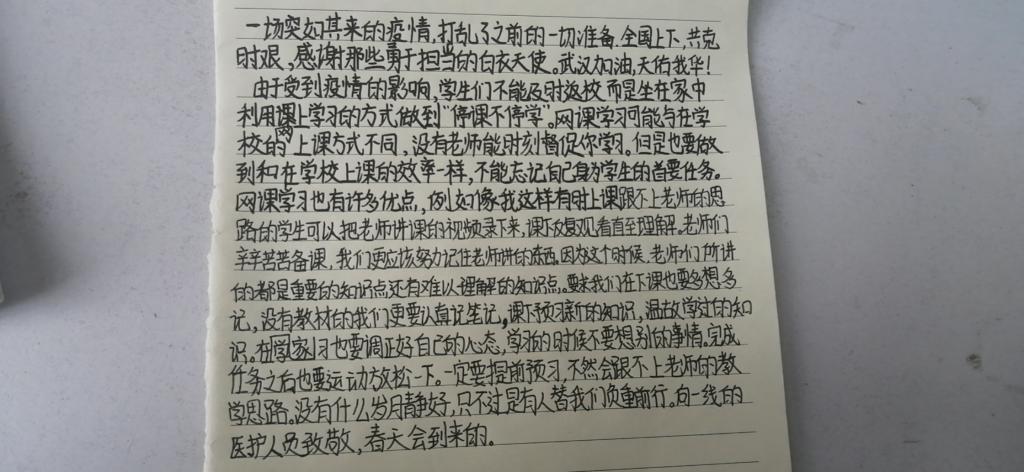 一场突如其来的疫情,打乱了之前的一切准备.全国上下,共克
时艰,感谢那些勇于担当的白衣天使。武汉加油,天佑我华!
由于受到疫情的影响,学生们不能及时返校而是坐在家中
利用课上学习的方式做到“停课不停学”。网课学习可能与在学
校的网上课方式不同,没有老师能时刻督促你学习。但是也要做
到和在学校上课的效率一样,不能忘记自己身为学生的首要任务。
网课学习也有许多优点,例如像我这样有时上课跟不上老师的思
路的学生可以把老师讲课的视频录下来,课下反复观看直至理解。老师们
辛辛苦苦备课,我们更应该努力记住老师讲的东西.因为这个时候,老师们所讲
的都是重要的知识点还有难以理解的知识点。要求我们在下课也要多想多
记,没有教材的我们更要认真记笔记,课下预习新的知识,温故学过的知
识。在家学习也要调正好自己的心态,学习的时候不要想别的事情。完成
任务之后也要运动放松一下。一定要提前预习,不然会跟不上老师的教
学思路。没有什么岁月静好,只不过是有人替我们负重前行。向一线的
医护人员致敬,春天会到来的。